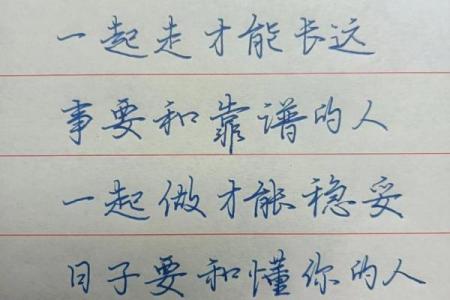 一起走才能长远
事要和靠谱的人
一起做才能稳妥
日子要和懂你的人